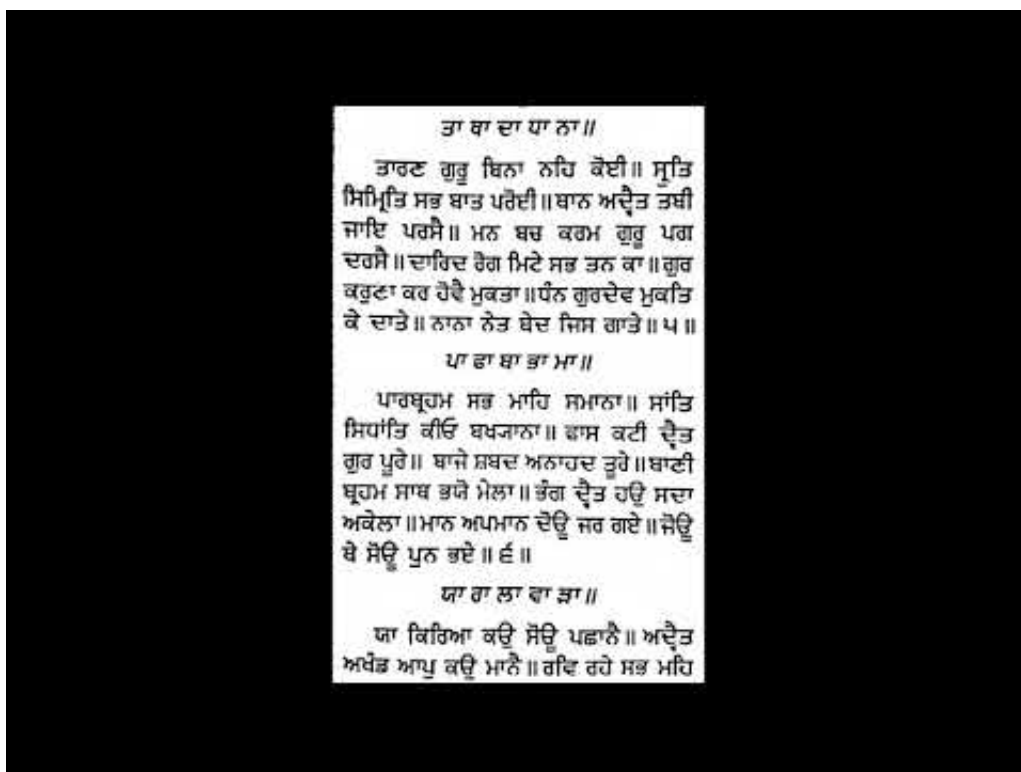 ਤਾ ਥਾ ਦਾ ਧਾ ਨਾ॥
ਤਾਰਣ ਗੁਰੂ ਬਿਨਾ ਨਹਿ ਕੋਈ॥ ਸ੍ਰੁਤਿ
ਸਿਮ੍ਰਿਤਿ ਸਭ ਬਾਤ ਪਰੋਈ॥ਥਾਨ ਅਦ੍ਵੈਤ ਤਬੀ
ਜਾਇ ਪਰਸੈ॥ ਮਨ ਬਚ ਕਰਮ ਗੁਰੂ ਪਗ
ਦਰਸੈ॥ਦਾਰਿਦ ਰੋਗ ਮਿਟੇ ਸਭ ਤਨ ਕਾ॥ਗੁਰ
ਕਰੁਣਾ ਕਰ ਹੋਵੈ ਮੁਕਤਾ॥ਧੰਨ ਗੁਰਦੇਵ ਮੁਕਤਿ
ਕੇ ਦਾਤੇ॥ ਨਾਨਾ ਨੇਤ ਬੇਦ ਜਿਸ ਗਾਤੇ॥੫॥
ਪਾ ਫਾ ਬਾ ਭਾ ਮਾ॥
ਪਾਰਬ੍ਰਹਮ ਸਭ ਮਾਹਿ ਸਮਾਨਾ॥ ਸਾਂਤਿ
ਸਿਧਾਂਤਿ ਕੀਓ ਬਖ੍ਯਾਨਾ॥ ਫਾਸ ਕਟੀ ਦ੍ਵੈਤ
ਗੁਰ ਪੂਰੇ॥ ਬਾਜੇ ਸ਼ਬਦ ਅਨਾਹਦ ਤੂਰੇ॥ਬਾਣੀ
ਬ੍ਰਹਮ ਸਾਥ ਭਯੋ ਮੇਲਾ॥ਭੰਗ ਦ੍ਵੈਤ ਹਉ ਸਦਾ
ਅਕੇਲਾ॥ਮਾਨ ਅਪਮਾਨ ਦੋਊ ਜਰ ਗਏ॥ਜੋਊ
ਥੇ ਸੋਊ ਪੁਨ ਭਏ॥੬॥
ਯਾ ਰਾ ਲਾ ਵਾ ੜਾ॥
ਯਾ ਕਿਰਿਆ ਕਉ ਸੋਊ ਪਛਾਨੈ॥ ਅਦ੍ਵੈਤ
ਅਖੰਡ ਆਪੁ ਕਉ ਮਾਨੈ॥ਰਵਿ ਰਹੇ ਸਭ ਮਹਿ